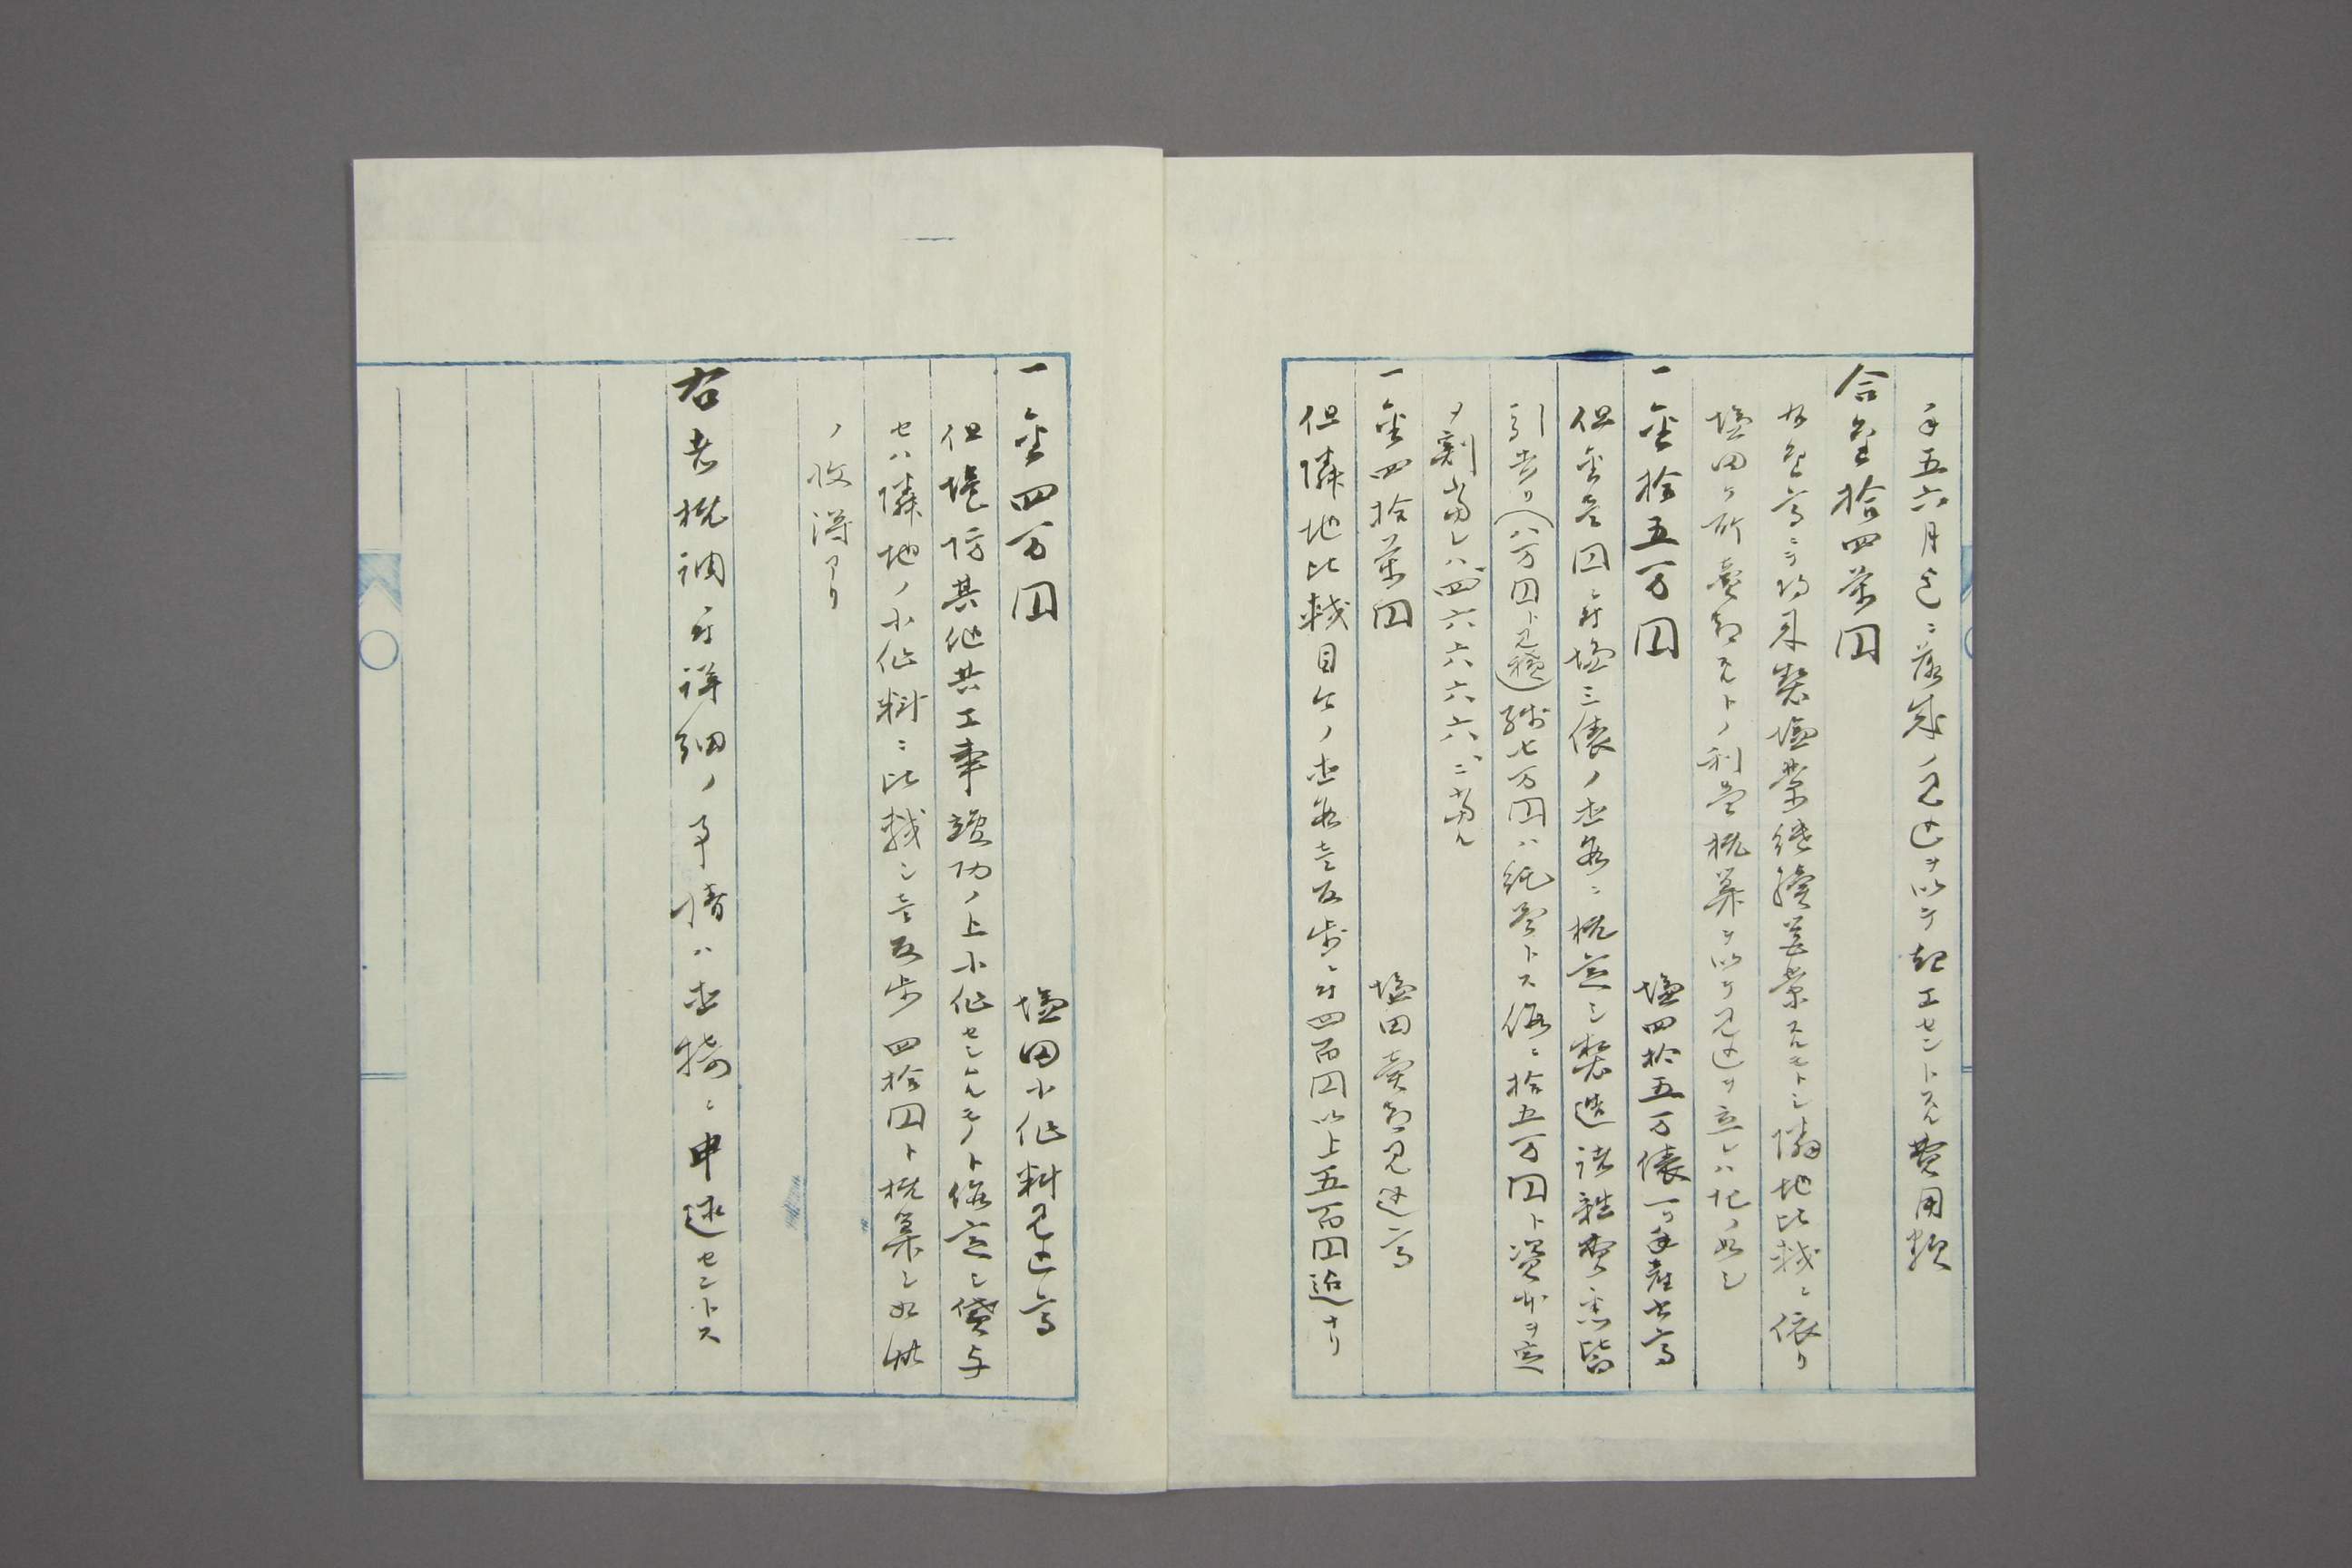 年五六月迄ニ落成ノ見込ヲ以テ起工セントスル費用額
合金拾四萬円
右金高ニテ將来製塩業継續営業スルモトシ隣地比較ニ依リ
塩田ヶ所売却スルトノ利益概算ヲ以テ見込ヲ立レハ左ノ如シ
一金拾五万円 塩四拾五万俵一ヶ年産出高
但金壱円ニ付塩三俵ノ相場ニ概定シ製造諸雑費悉皆
引去リ(八万円ト見積)残七万円ハ純益トス仮ニ拾五万円ト資本ヲ定
メ割当レハ四六六六六ニ当ル
一金四拾萬円 塩田売却見込高
但隣地比較目今ノ相場壱反歩ニ付四百円以上五百円迠ナリ
一金四万円 塩田小作料見込高
但堤防其他共工事竣功ノ上小作セシムルモノト仮定シ貸与
セハ隣地ノ小作料ニ比較シ壱反歩四拾円ト概算シ如此
ノ收得アリ
右者概調ニ付詳細ノ事情ハ出頭ニ申述セントス